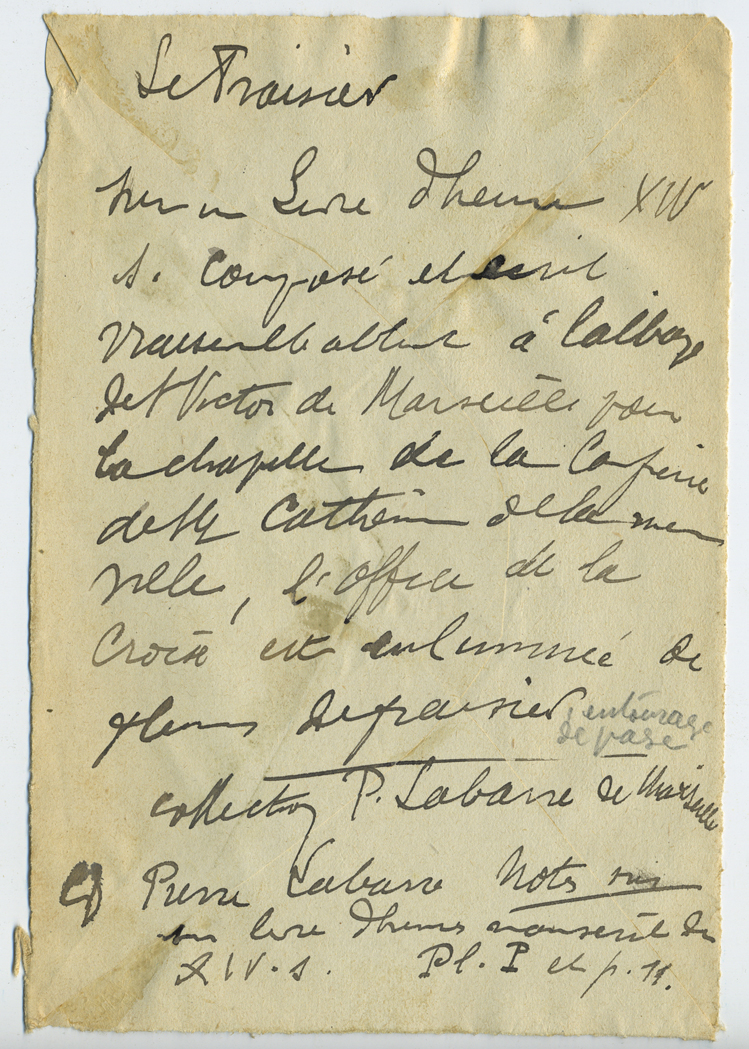 Le Fraisier
sur un Livre d'heures XIV
s. composé et écrit
vraisemblablemt à l'abbaye
de St Victor de Marseille pour
la chapelle de la Confrérie
de Ste Catherine de la même
ville, l'office de la
Croix est enluminée de
fleurs de fraisier, entourage
de page
collection P. Labarre de Marseille
Cf Pierre Labarre Notes sur
un livre d'heures manuscrit du
XIV. s. Pl. I et p. 11.